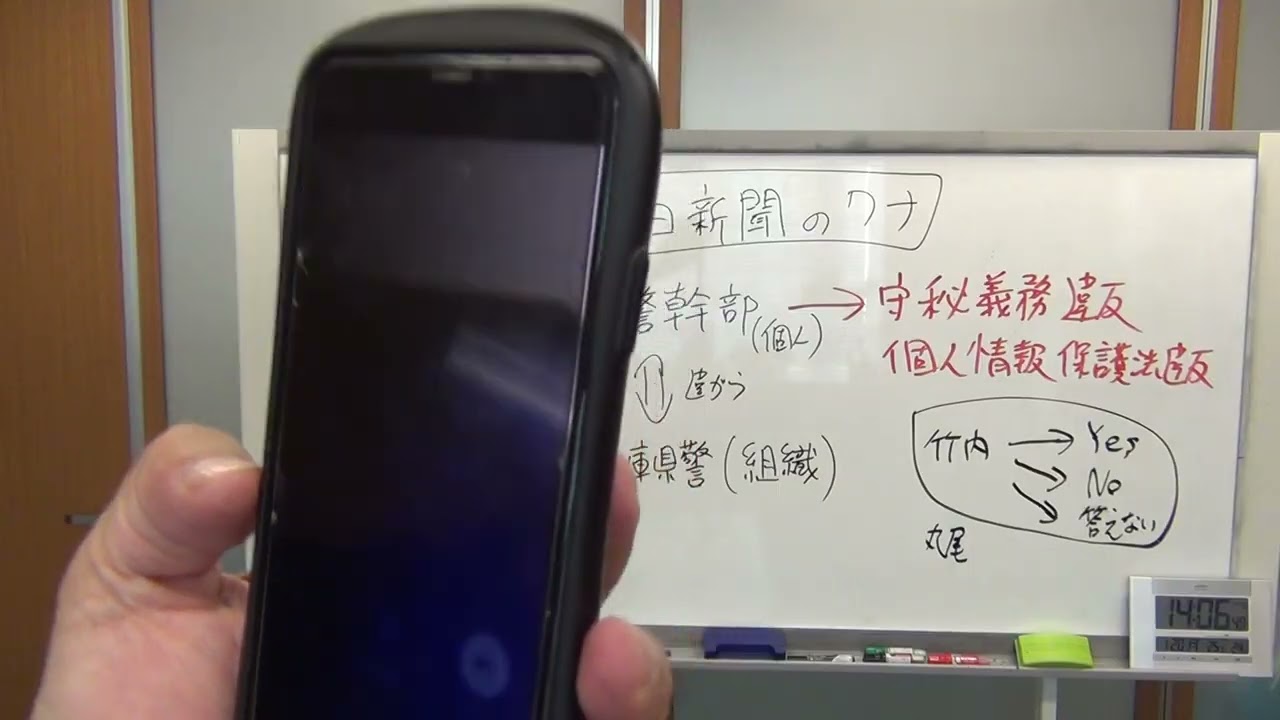 日新聞のワナ
警幹部(個人) → 守秘義務違反
個人情報保護法違反
違がう
庫県警(組織)
竹内 → Yes
→ No
→ 答えない
丸尾
14:06